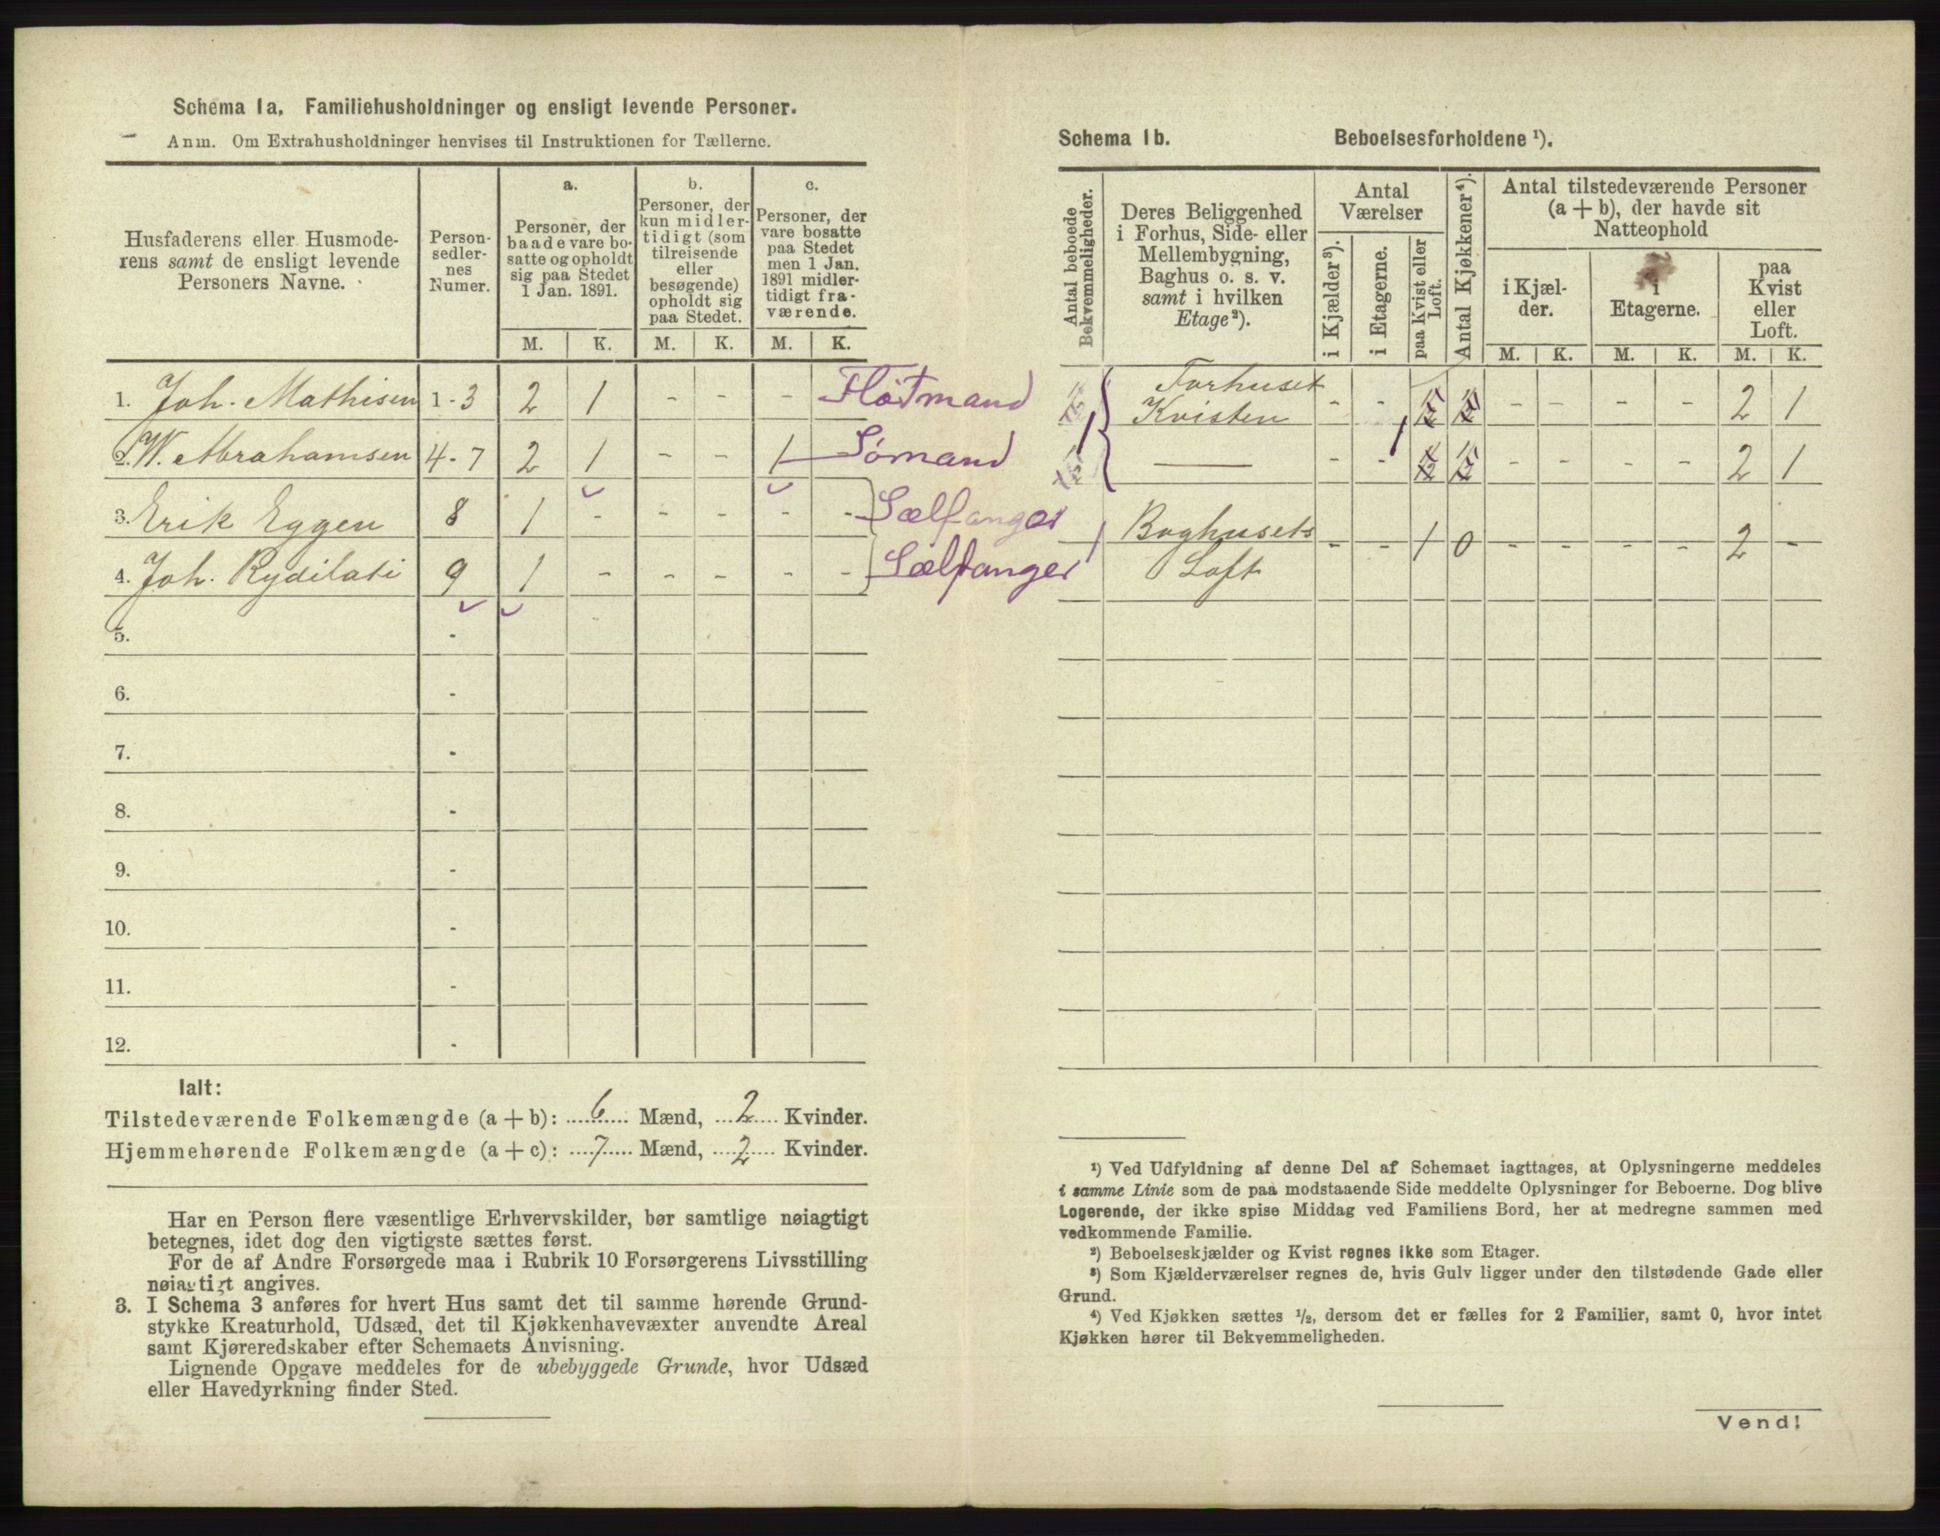 Schema 1a. Familiehusholdninger og ensligt levende Personer.
Anm. Om Extrahusholdninger henvises til Instruktionen for Tællerne.
Husfaderens eller Husmode-
rens samt de ensligt levende
Personers Navne.
Person-
sedler-
nes
Numer.
a.
Personer, der
baade vare bo-
satte og opholdt
sig paa Stedet
1 Jan. 1891.
b.
Personer, der
kun midler-
tidigt (som
tilreisende
eller
besøgende)
opholdt sig
paa Stedet.
c.
Personer, der
vare bosatte
paa Stedet
men 1 Jan.
1891 midler-
tidigt fra-
værende.
M. K. M. K. M. K.
1. Joh. Mathisen 1-3 2 1 - - - Fløtmand
2. W. Abrahamsen 4-7 2 1 - - 1 Sømand
3. Erik Eggen 8 1 - - - - - Sælfanger
4. Joh. Rydilati 9 1 - - - - - Sælfanger
5. -
6. -
7. -
8. -
9. -
10. -
11. -
12. -
Ialt:
Tilstedeværende Folkemængde (a + b): 6 Mænd, 2 Kvinder.
Hjemmehørende Folkemængde (a + c): 7 Mænd, 2 Kvinder.
Har en Person flere væsentlige Erhvervskilder, bør samtlige nøiagtigt
betegnes, idet dog den vigtigste sættes først.
For de af Andre Forsørgede maa i Rubrik 10 Forsørgerens Livsstilling
nøiagtigt angives.
3. I Schema 3 anføres for hvert Hus samt det til samme hørende Grund-
stykke Kreaturhold, Udsæd, det til Kjøkkenhavevæxter anvendte Areal
samt Kjøreredskaber efter Schemaets Anvisning.
Lignende Opgave meddeles for de ubebyggede Grunde, hvor Udsæd
eller Havedyrkning finder Sted.
Schema 1b. Beboelsesforholdene ¹).
Antal beboede
Bekvemmeligheder.
Deres Beliggenhed
i Forhus, Side- eller
Mellembygning,
Baghus o. s. v.
samt i hvilken
Etage²).
Antal
Værelser
i Kjælder³).
i Etagerne.
paa Kvist eller
Loft.
Antal Kjøkkener⁴).
Antal tilstedeværende Personer
(a + b), der havde sit
Natteophold
i Kjæl-
der.
i
Etagerne.
paa
Kvist
eller
Loft.
M. K. M. K. M. K.
Forhuset
Kvisten - - - - - - 2 1
1 1
—— - - - - - - 2 1
1 Baghusets
Loft - - 1 0 - - - - 2 -
¹) Ved Udfyldning af denne Del af Schemaet iagttages, at Oplysningerne meddeles
i samme Linie som de paa modstaaende Side meddelte Oplysninger for Beboerne. Dog blive
Logerende, der ikke spise Middag ved Familiens Bord, her at medregne sammen med
vedkommende Familie.
²) Beboelseskjælder og Kvist regnes ikke som Etager.
³) Som Kjælderværelser regnes de, hvis Gulv ligger under den tilstødende Gade eller
Grund.
⁴) Ved Kjøkken sættes ½, dersom det er fælles for 2 Familier, samt 0, hvor intet
Kjøkken hører til Bekvemmeligheden.
Vend!